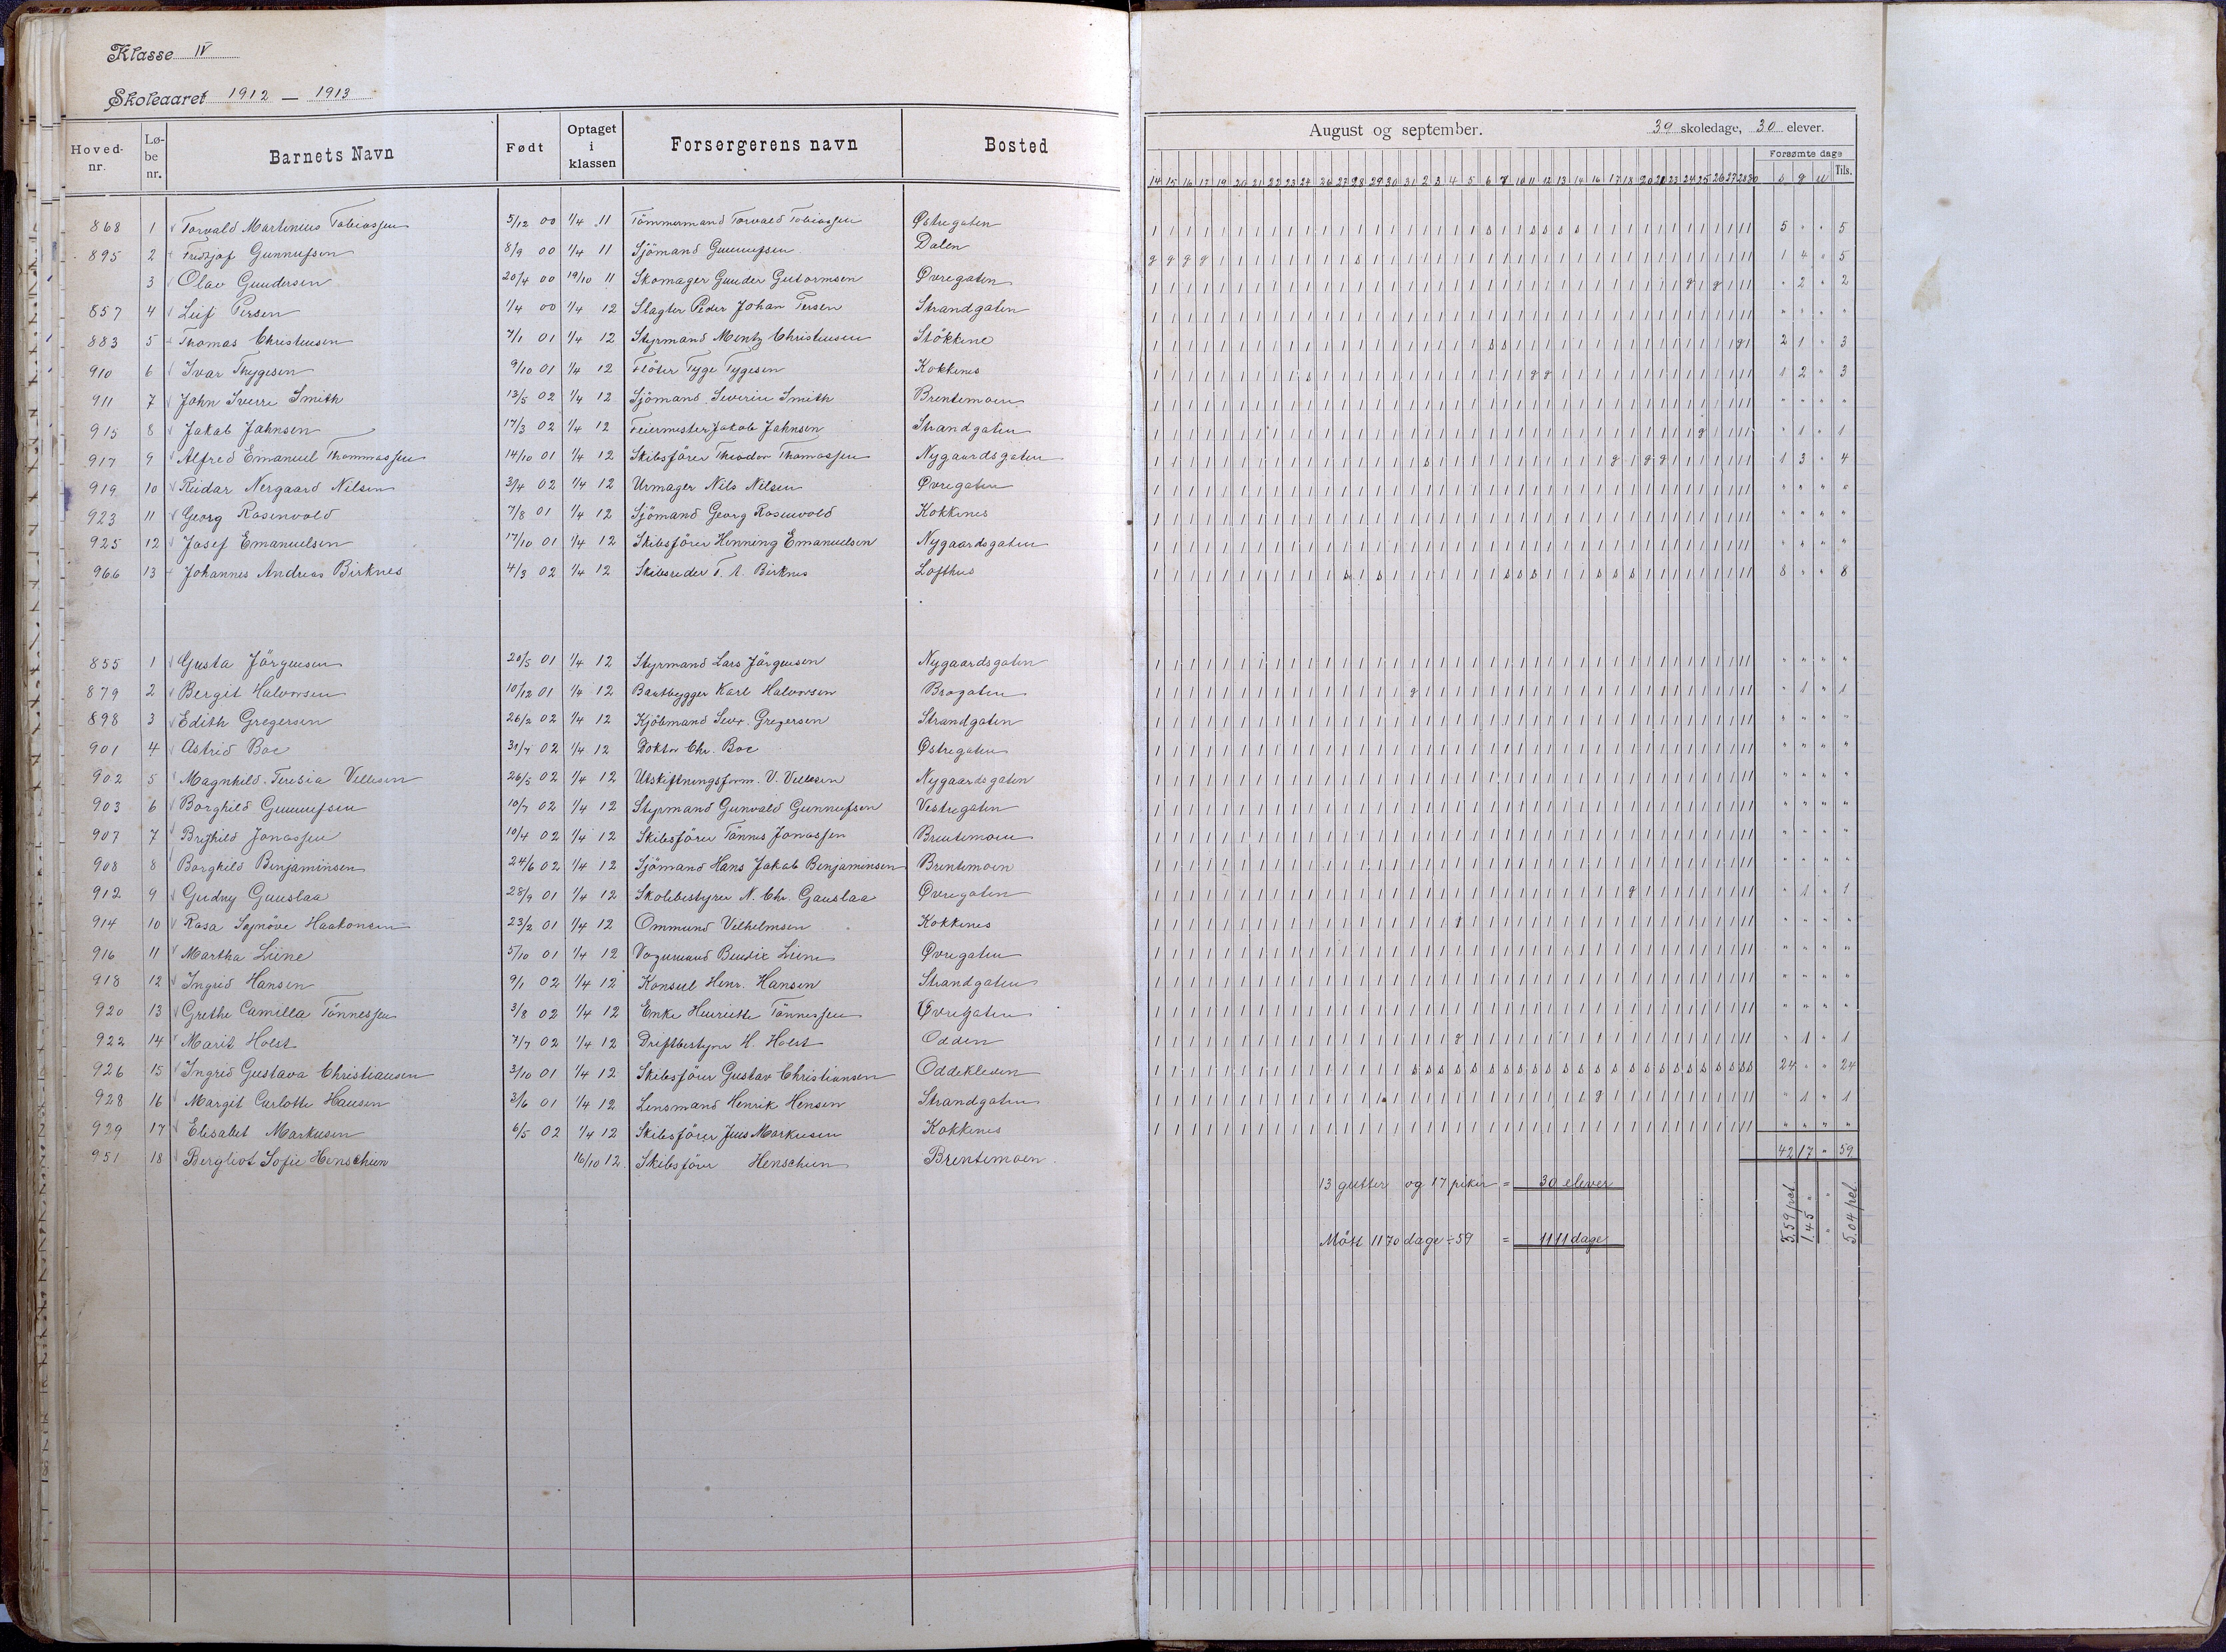 Klasse IV
Skoleaaret 1912 — 1913
Hoved-nr. Lø-be nr. Barnets Navn Født Optaget i klassen Forsørgerens navn Bosted
August og september. 39 skoledage, 30 elever.
Forsømte dage
14 15 16 17 19 20 21 22 23 24 26 27 28 29 30 31 2 3 4 5 6 7 10 11 12 13 14 16 17 18 20 21 23 24 25 26 27 28 30 s g u Tils.
868 1 Torvald Martinius Tobiassen 5/12 00 1/4 11 Tömmermand Torvald Tobiassen Østregaten 5 " " 5
895 2 Fridtjof Gunnufsen 8/9 00 1/4 11 Sjömand Gunnufsen Dalen 1 4 " 5
3 Olav Gundersen 20/4 00 19/10 11 Skomager Gunder Gutormsen Øvregaten " 2 " 2
857 4 Leif Persen 1/4 00 1/4 12 Slagter Peder Johan Persen Strandgaten " " " "
883 5 Thomas Christensen 7/1 01 1/4 12 Styrmand Mentz Christensen Stökkene 2 1 " 3
910 6 Ivar Thygesen 9/10 01 1/4 12 Flöter Tyge Tygesen Kokkenes 1 2 " 3
911 7 John Sverre Smith 13/5 02 1/4 12 Sjömand Severin Smith Brentemoen " " " "
915 8 Jakob Jahnsen 17/3 02 1/4 12 Feiermester Jakob Jahnsen Strandgaten " 1 " 1
917 9 Alfred Emanuel Thommassen 14/10 01 1/4 12 Skibsförer Theodor Thomassen Nygaardsgaten 1 3 " 4
919 10 Reidar Nergaard Nilsen 3/4 02 1/4 12 Urmager Nils Nilsen Øvregaten " " " "
923 11 Georg Rosenvold 7/8 01 1/4 12 Sjömand Georg Rosenvold Kokkenes " " " "
925 12 Josef Emanuelsen 17/10 01 1/4 12 Skibsförer Henning Emanuelsen Nygaardsgaten " " " "
966 13 Johannes Andreas Birknes 4/3 02 1/4 12 Skibsreder T. A. Birknes Lofthus 8 " " 8
855 1 Gusta Jörgensen 20/5 01 1/4 12 Styrmand Lars Jörgensen Nygaardsgaten " " " "
879 2 Bergit Halvorsen 10/12 01 1/4 12 Baatbygger Karl Halvorsen Brogaten " 1 " 1
898 3 Edith Gregersen 26/2 02 1/4 12 Kjöbmand Sev. Gregersen Strandgaten " " " "
901 4 Astrid Boe 31/7 02 1/4 12 Doktor Chr. Boe Østregaten " " " "
902 5 Magnhild Teresia Vellesen 26/5 02 1/4 12 Utskiftningsform. V. Vellesen Nygaardsgaten " " " "
903 6 Borghild Gunnufsen 10/7 02 1/4 12 Styrmand Gunvald Gunnufsen Vestregaten " " " "
907 7 Brynhild Jonassen 10/4 02 1/4 12 Skibsförer Tönnes Jonassen Brentemoen " " " "
908 8 Borghild Benjaminsen 24/6 02 1/4 12 Sjömand Hans Jakob Benjaminsen Brentemoen " " " "
912 9 Gudny Gauslaa 28/9 01 1/4 12 Skolebestyrer N. Chr. Gauslaa Øvregaten " 1 " 1
914 10 Rasa Sojnöve Haakonsen 23/2 01 1/4 12 Ommund Velhelmsen Kokkenes " " " "
916 11 Martha Liine 5/10 01 1/4 12 Vognmand Bendix Liine Øvregaten " " " "
918 12 Ingrid Hansen 9/1 02 1/4 12 Konsul Henr. Hansen Strandgaten " " " "
920 13 Grethe Camilla Tönnessen 3/8 02 1/4 12 Enke Henriette Tönnessen Øvregaten " " " "
922 14 Marit Holst 7/7 02 1/4 12 Driftbestyrer H. Holst Odden " 1 " 1
926 15 Ingrid Gustava Christiansen 3/10 01 1/4 12 Skibsförer Gustav Christiansen Oddekleven 24 " " 24
928 16 Margit Carlotte Hansen 3/6 01 1/4 12 Lensmand Henrik Hensen Strandgaten " 1 " 1
929 17 Elisabet Markusen 6/5 02 1/4 12 Skibsförer Jens Markusen Kokkenes " " " "
951 18 Bergliot Sofie Henschien 16/10 12. Skibsförer Henschien Brentemoen 42 17 " 59
13 gutter og 17 piker = 30 elever
Mött 1170 dage ÷ 59 = 1111 dage
3.59 pct. 1.45 " " " 5.04 pct